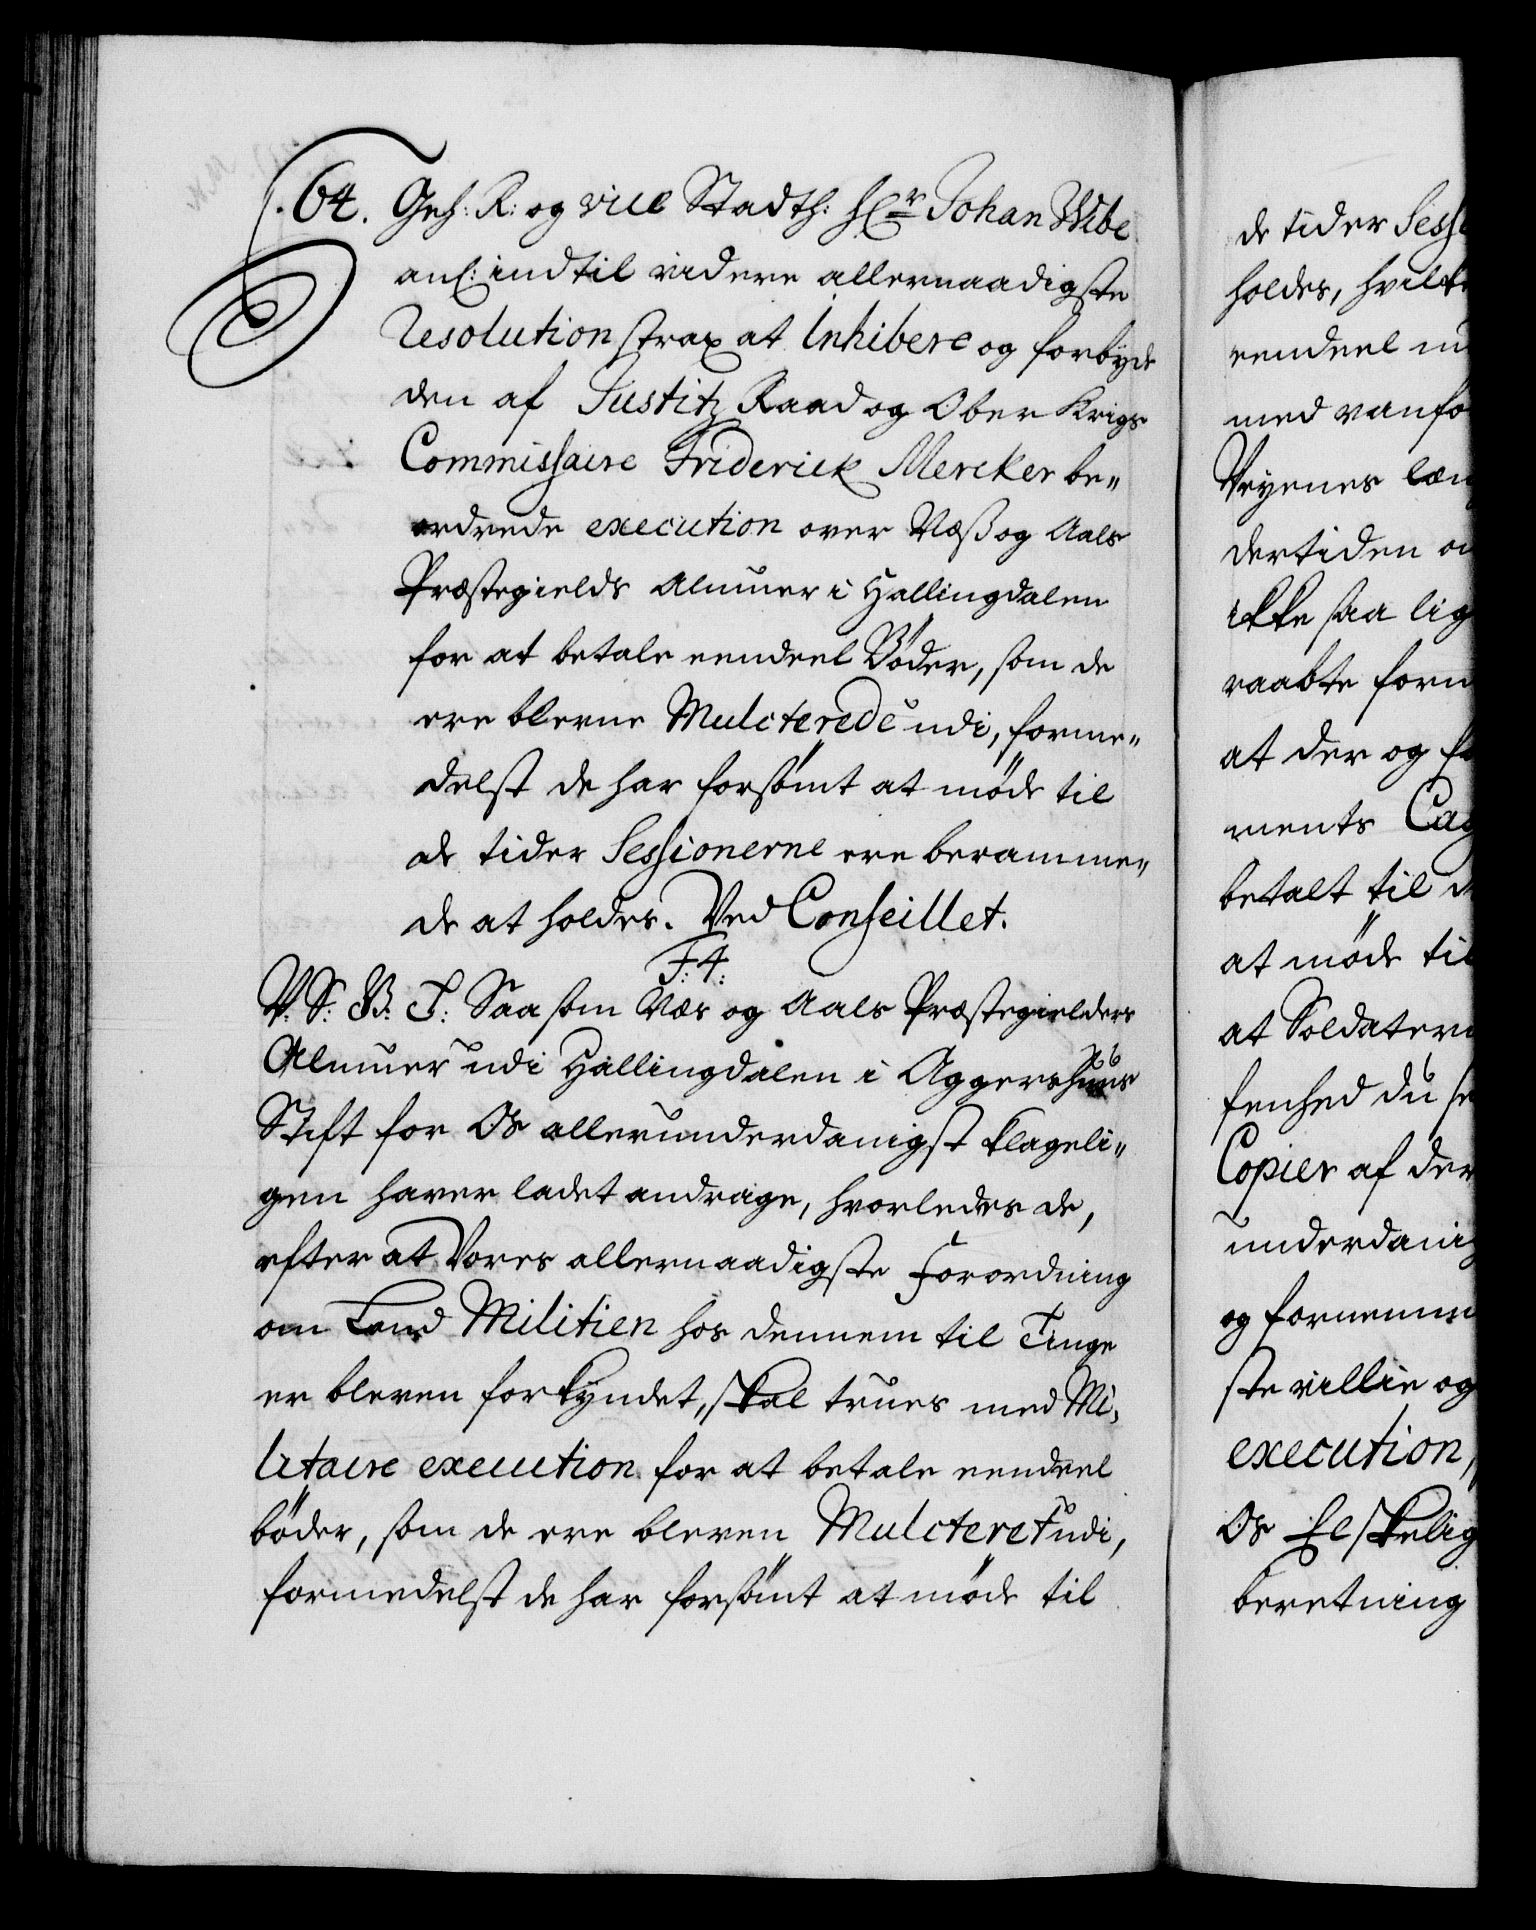 64. Geh: R: og vice Stadth: Hr Johan Wibe
anl: indtil videre allernaadigste
Resolution strax at Inhibere og forbyde
den af Justitz Raad og Ober Krigs
Commissaire Friderick Mercker be"
ordrede execution over Næss og Aals
Præstegields Almuer i Hallingdalen
for at betale eendeel Böder, som de
ere blevne Mulcterede udi, forme"
delst de har forsömt at möde til
de tider Sessionerne ere beramme"
de at holdes. Ved Conseillet.
F: 4:
V: S: B: T: Saasom Næs og Aals Præstegielders
Almuer udi Hallingdalen i Aggershuus
Stift for Os allerunderdanigst klageli"
gen haver ladet andrage, hvorledes de,
efter at Vores allernaadigste Forordning
om Land Militien hos dennem til Tinge
er bleven forkyndet, skal trues med Mi,
litaire execution for at betale eendeel
böder, som de ere bleven Mulcteret udi,
formedelst de har forsömt at möde til
de tider
holdes,
eendeel
med
Veyenes
dertiden
ikke saa
raabte
at der og
ments
betalt til
at möde til
at
du
Copier af
og
ste villie og
execution,
Os
beretning